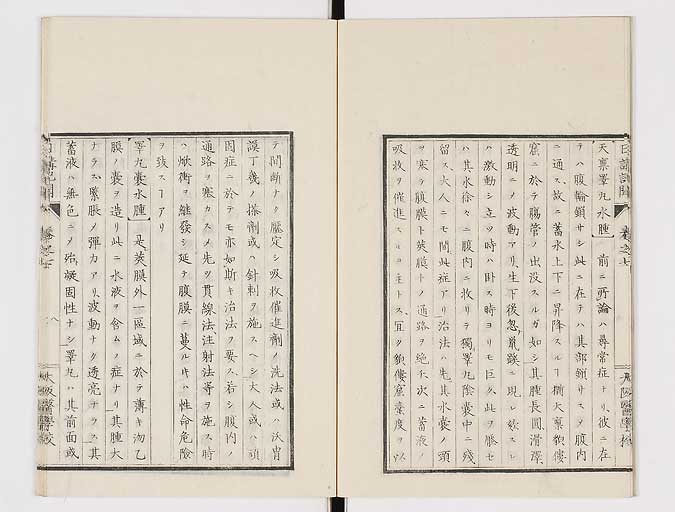 日講記聞 卷之七 大阪醫學校
天稟睾丸水腫 前ニ所論ハ尋常症ナリ、彼ニ在
テハ腹輪鎖サシ此ニ在テハ其部鎖サスメ腹内
ニ通ス、故ニ蓄水上下ニ昇降スルヿ猶天稟
窩ニ於テ腸管ノ出没スルガ如シ其腫長圓滑澤
透明ニメ波動アリ、生下後忽
ハ激動シ立ツ時ハ臥ス時ヨリモ巨
ハ其水徐々ニ腹内ニ收リテ獨睾丸陰嚢中ニ殘
留ス、大人ニモ間此症アリ治法ハ先其水嚢ノ頸
ヲ塞テ腹膜ト莢膜トノ通路ヲ絶チ次ニ蓄液ノ
吸收ヲ催進スルヲ主トス、宜ク
テ間斷ナク壓定シ吸收催進劑ノ洗法或ハ沃胄
謨丁幾ノ搽劑或ハ針刺ヲ施スヘシ大人或ハ頑
固症ニ於テモ亦如斯キ治法ヲ要ス若シ腹内ノ
通路ヲ塞カスメ先ツ貫線法、注射法等ヲ施ス時
ハ焮衝ヲ繼發シ延テ腹膜ニ蔓ルキハ性命危險
ヲ致スヿアリ
睾丸嚢水腫 是莢膜外一區域ニ於テ薄キ
膜ノ嚢ヲ造リ此ニ水液ヲ含ムノ症ナリ其腫大
ナラズ緊脹メ彈力アリ、波動ナク透亮ナラス、其
蓄液ハ無色ニメ殆凝固性ナシ睾丸ハ其前面或
日講記聞 卷之七 八 大阪醫學校